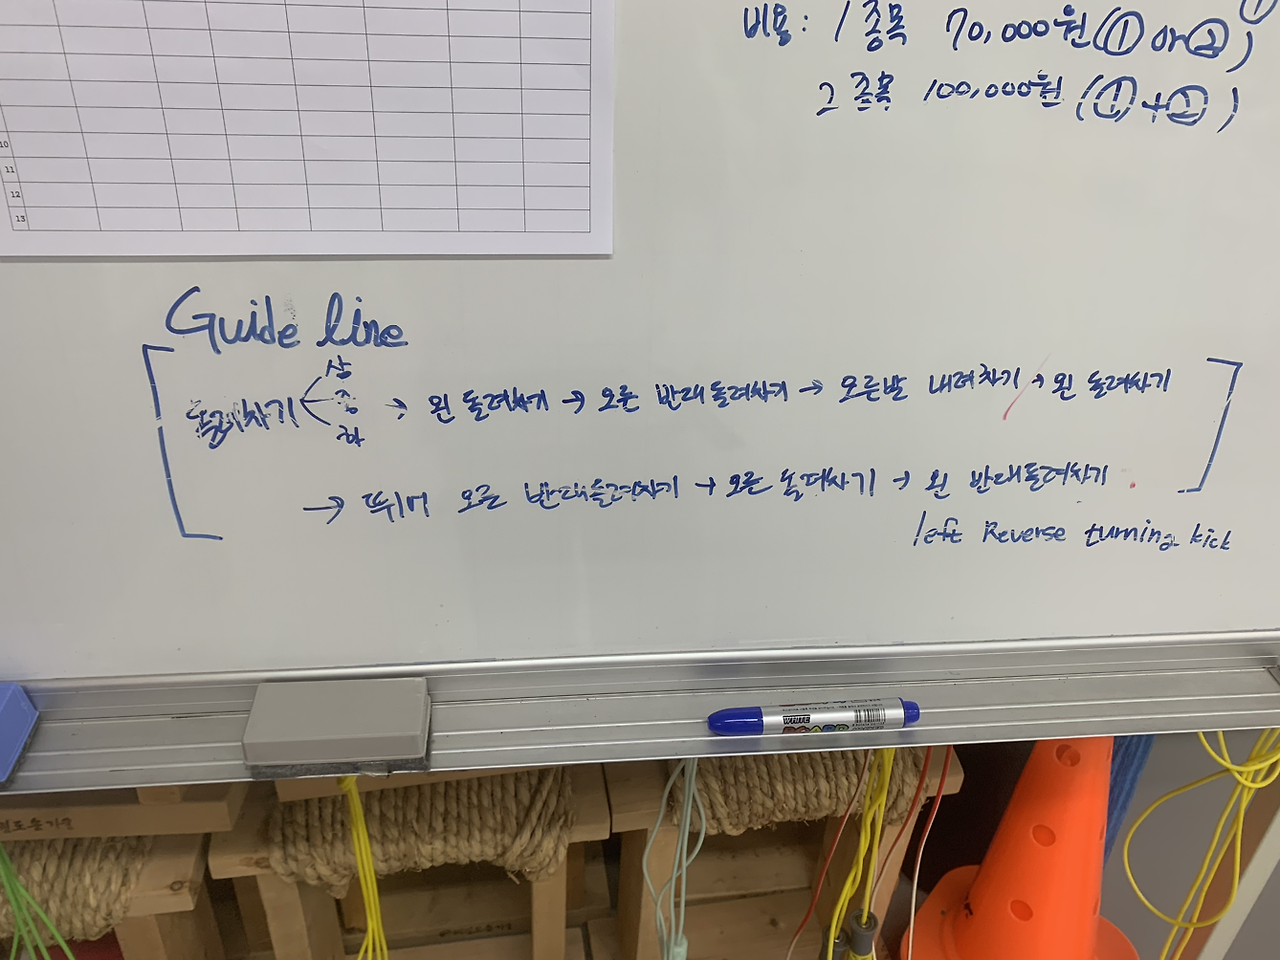 비용: 1종목 70,000원 (① or ②)
2종목 100,000원 (①+②)
10
11
12
13
Guide line
돌려차기 상 중 하 → 왼 돌려차기 → 오른 반대돌려차기 → 오른발 내려차기 → 왼 돌려차기
→ 뛰어 오른 반대돌려차기 → 오른 돌려차기 → 왼 반대돌려차기
left Reverse turning kick
WHITE
BOARD